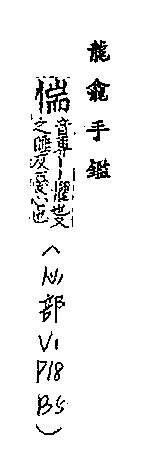 龍龕手鑑
惴
音專丨懼也又
之睡反憂心也
(心部V1P18B5)